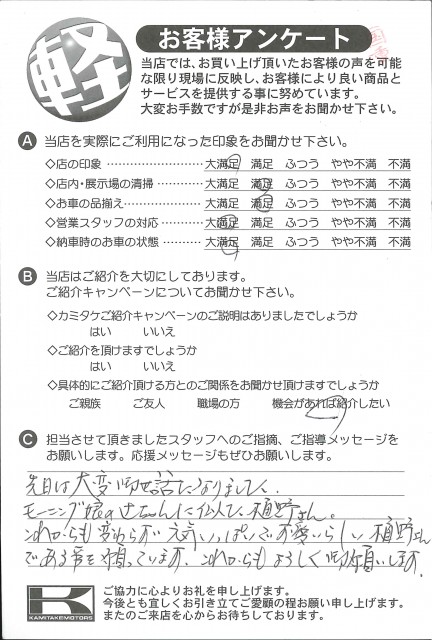 軽
お客様アンケート
当店では、お買い上げ頂いたお客様の声を可能
な限り現場に反映し、お客様により良い商品と
サービスを提供する事に努めています。
大変お手数ですが是非お声をお聞かせ下さい。
A 当店を実際にご利用になった印象をお聞かせ下さい。
◇店の印象 ………………………… 大満足 満足 ふつう やや不満 不満
◇店内・展示場の清掃 …………… 大満足 満足 ふつう やや不満 不満
◇お車の品揃え …………………… 大満足 満足 ふつう やや不満 不満
◇営業スタッフの対応 …………… 大満足 満足 ふつう やや不満 不満
◇納車時のお車の状態 ………… 大満足 満足 ふつう やや不満 不満
B 当店はご紹介を大切にしてあります。
ご紹介キャンペーンについてお聞かせ下さい。
◇カミタケご紹介キャンペーンのご説明はありましたでしょうか
はい いいえ
◇ご紹介を頂けますでしょうか
はい いいえ
◇具体的にご紹介頂ける方とのご関係をお聞かせ頂けますでしょうか
ご親族 ご友人 職場の方 機会があれば紹介したい
C 担当させて頂きましたスタッフへのご指摘、ご指導メッセージを
お願いします。応援メッセージもぜひお願いします。
先日は大変御世話になりました、
モーニング娘の辻ちゃんに似た、植野さん。
これからも変わらず元気いっぱいで可愛いらしい植野さん
である事を願っています。これからもよろしく御願いします。
K
KAMITAKEMOTORS
ご協力に心よりお礼を申し上げます。
今後とも宜しくお引き立てご愛顧の程お願い申し上げます。
またのご来店を心からお待ちしております。